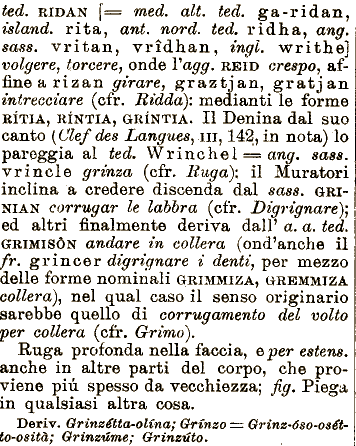 ted. RIDAN [= med. alt. ted. ga-ridan,
island. rita, ant. nord. ted. ridha, ang.
sass. vritan, vrîdhan, ingl. writhe]
volgere, torcere, onde l'agg. REID crespo, af-
fine a rizan girare, graztjan, gratjan
intrecciare (cfr. Ridda): medianti le forme
RÍTIA, RÍNTIA, GRÍNTIA. Il Denina dal suo
canto (Clef des Langues, III, 142, in nota) lo
pareggia al ted. Wrinchel = ang. sass.
vrincle grinza (cfr. Ruga): il Muratori
inclina a credere discenda dal sass. GRI-
NIAN corrugar le labbra (cfr. Digrignare);
ed altri finalmente deriva dall' a. a. ted.
GRIMISÔN andare in collera (ond'anche il
fr. grincer digrignare i denti, per mezzo
delle forme nominali GRIMMIZA, GREMMIZA
collera), nel qual caso il senso originario
sarebbe quello di corrugamento del volto
per collera (cfr. Grimo).
Ruga profonda nella faccia, e per estens.
anche in altre parti del corpo, che pro-
viene piú spesso da vecchiezza; fig. Piega
in qualsiasi altra cosa.
Deriv. Grinzétta-olína; Grínzo = Grinz-óso-osét-
to-osità; Grinzúme; Grinzúto.